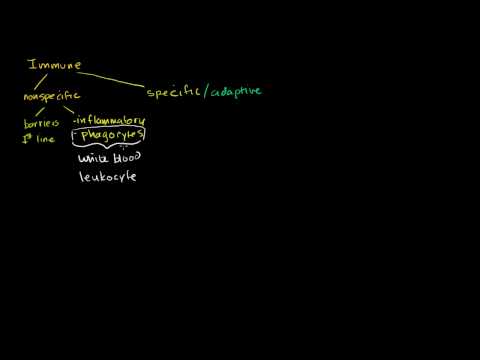 Immune
nonspecific
specific/adaptive
barriers
1st line
-inflammatory
- phagocytes
white blood
leukocyte